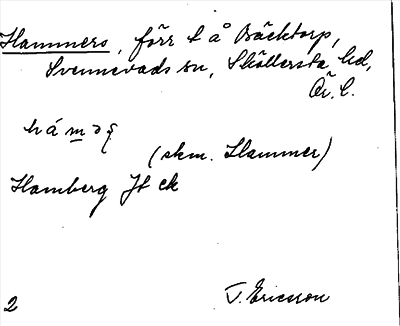 Hammers, förr t å Bäcktorp,
Svennevads sn, Sköllersta hd,
Ör. l.
hámә
(skm. Hammer)
Hamberg Jt ek
2
T. Ericsson